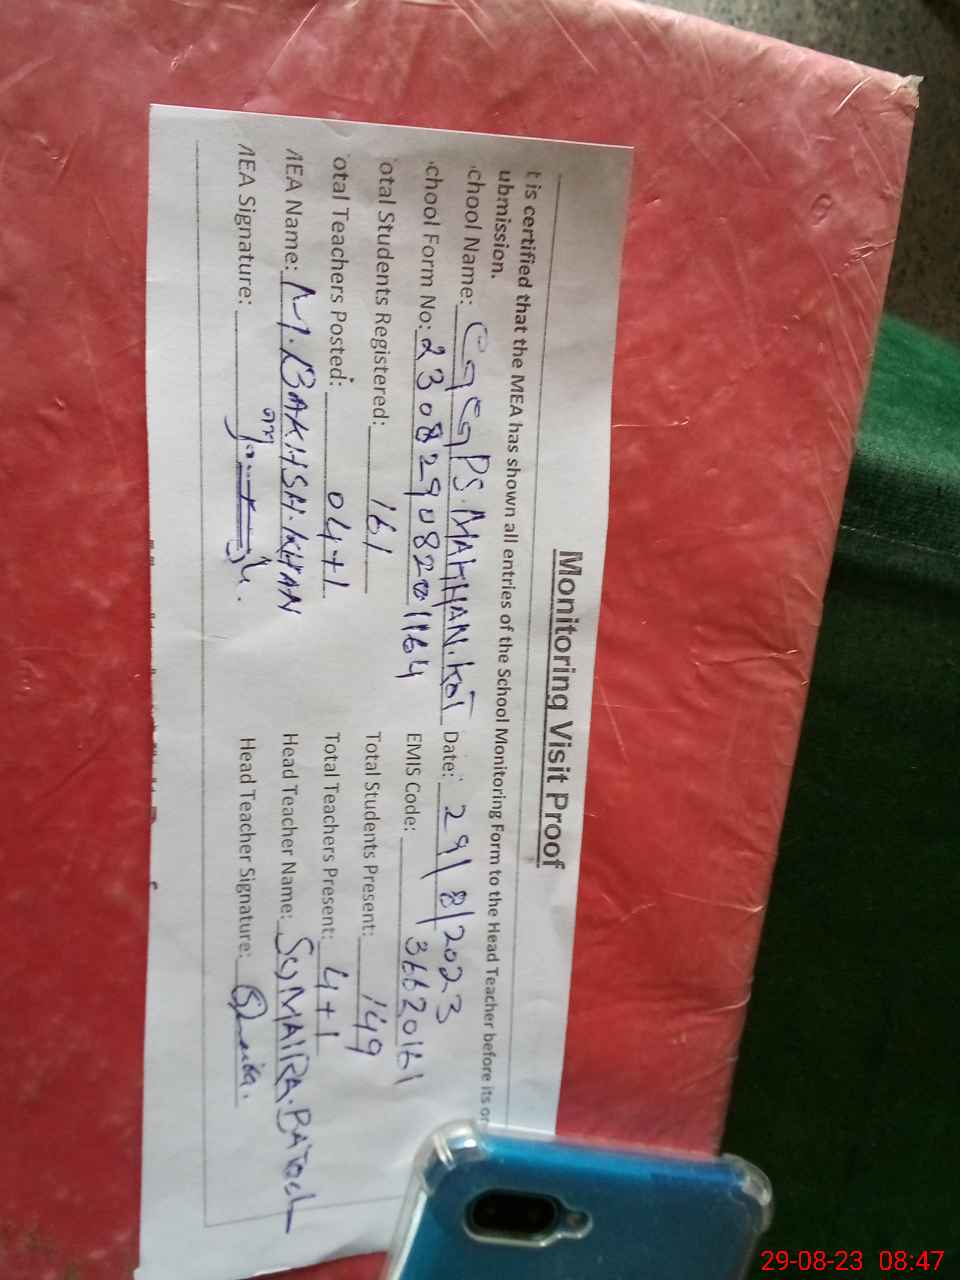 Monitoring Visit Proof
t is certified that the MEA has shown all entries of the School Monitoring Form to the Head Teacher before its on
ubmission.
chool Name: GGPS.MAKHAN.Kot Date: 29/8/2023
chool Form No: 23082908201164 EMIS Code: 36620161
otal Students Registered: 161 Total Students Present: 149
otal Teachers Posted: 04+1 Total Teachers Present: 4+1
MEA Name: M.BAKHSH.KHAN Head Teacher Name: SUMAIRA.BATOOL
MEA Signature: Head Teacher Signature:
29-08-23 08:47